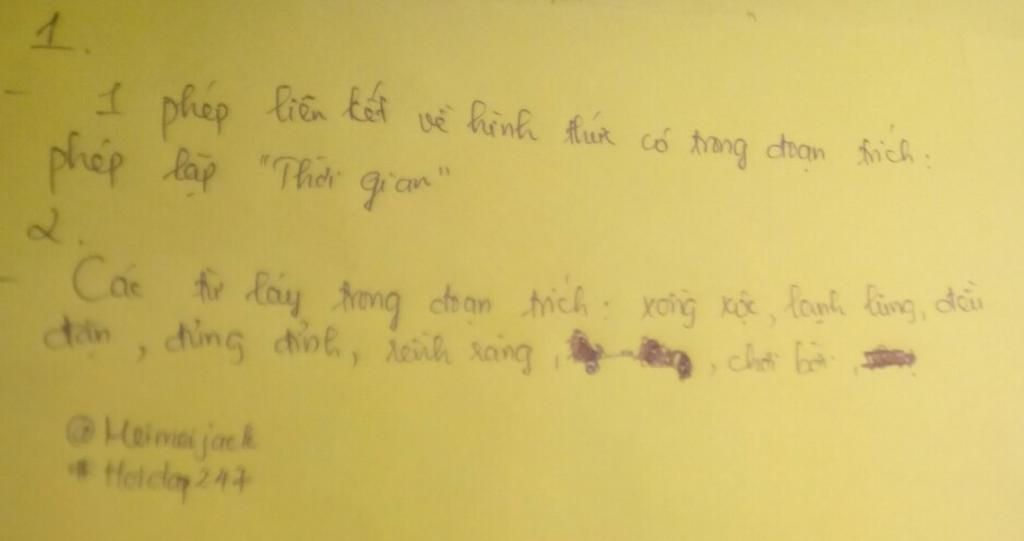 1.
- 1 phép liên kết về hình thức có trong đoạn trích:
phép lặp "Thời gian"
2.
- Các từ láy trong đoạn trích: xồng xộc, lạnh lùng, đều
đặn, đủng đỉnh, xềnh xàng, , chơi bời,
@Meimeijack
#Hoidap247